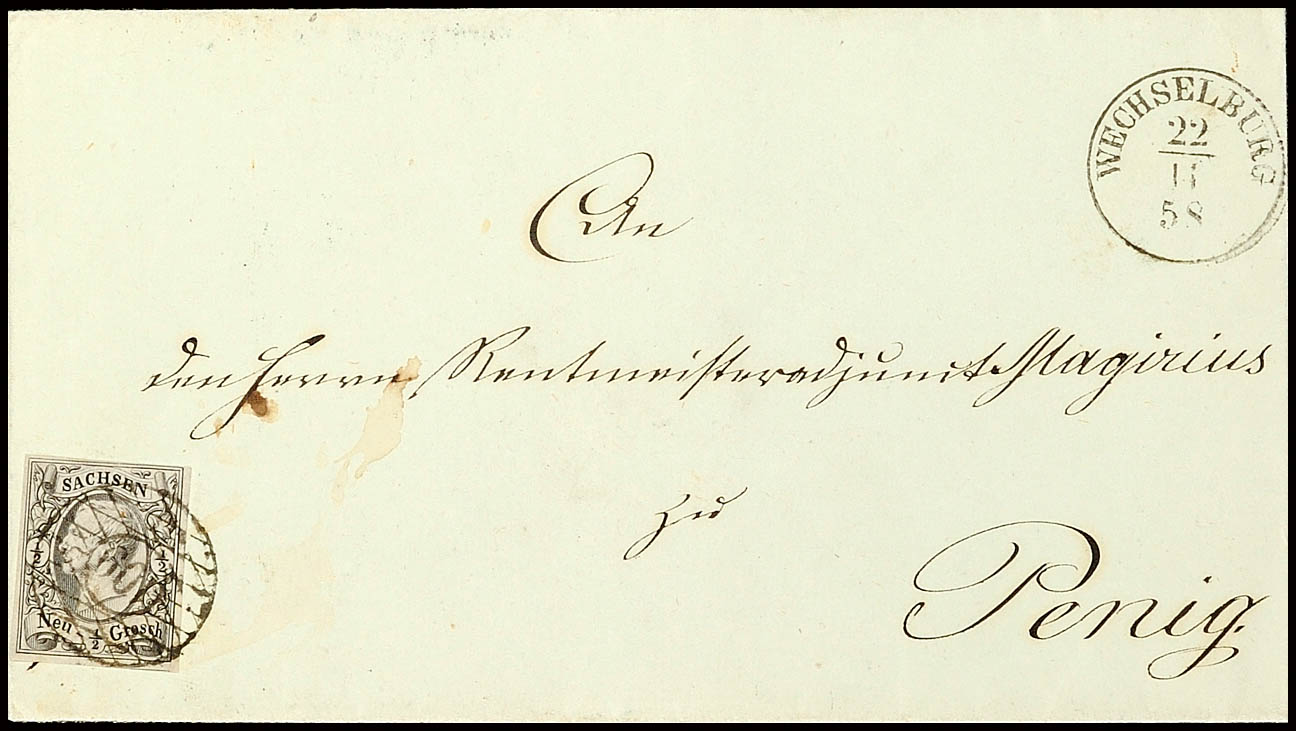 WECHSELBURG
22
11
58
An
den Herrn Rentmeisteradjunct Magirius
zu
Penig.
SACHSEN
1/2 1/2
Neu - 1/2 Grosch